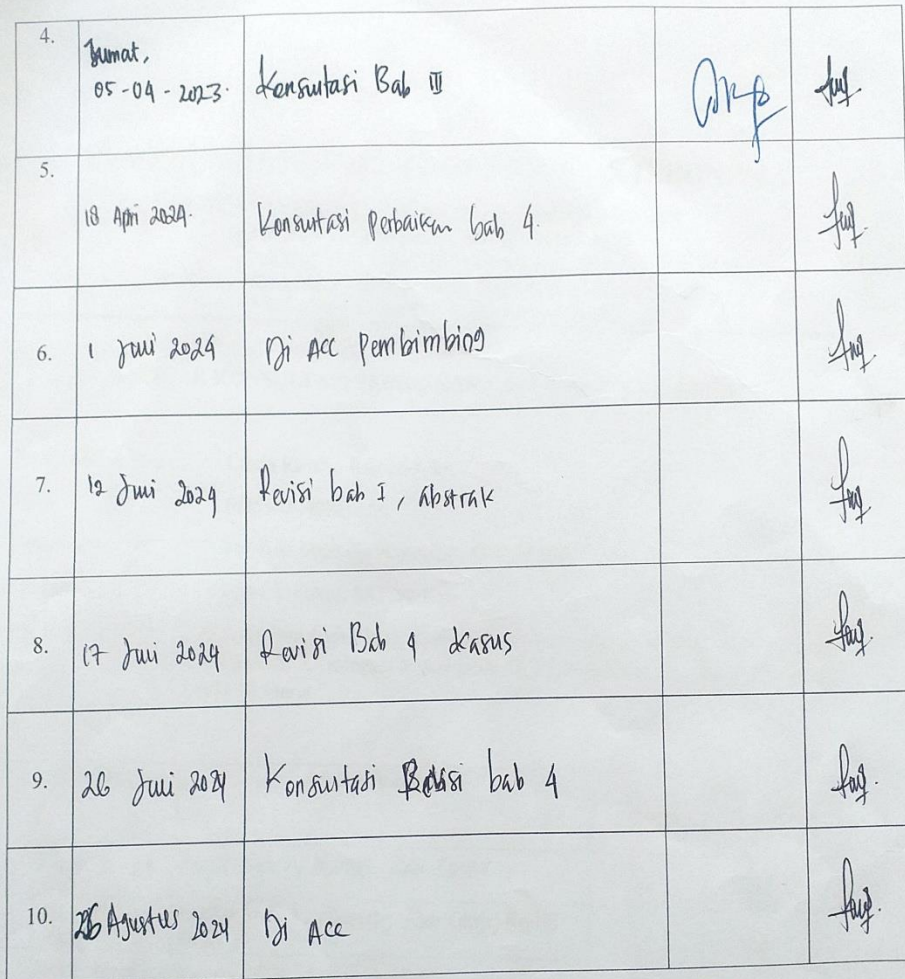 4.
Jumat,
05-04-2023.
Konsultasi Bab III
5.
18 Apri 2024.
Konsultasi Perbaikan bab 4.
6.
1 Juni 2024
Di Acc Pembimbing
7.
12 Juni 2024
Revisi bab I, abstrak
8.
17 Juni 2024
Revisi Bab 4 Kasus
9.
26 Juni 2024
Konsultasi Revisi bab 4
10.
26 Agustus 2024
Di Acc